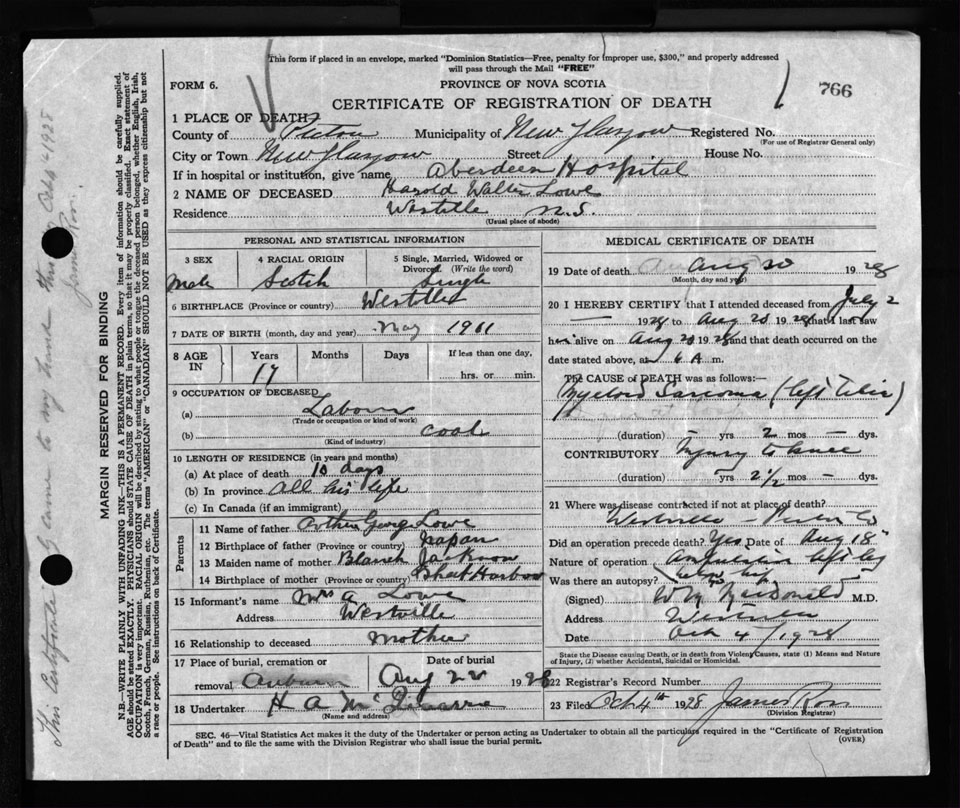 This form if placed in an envelope, marked "Dominion Statistics—Free, penalty for improper use, $300," and properly addressed
will pass through the Mail "FREE"
FORM 6.
PROVINCE OF NOVA SCOTIA
766
CERTIFICATE OF REGISTRATION OF DEATH
1 PLACE OF DEATH
County of Pictou Municipality of New Glasgow Registered No.
(For use of Registrar General only)
City or Town New Glasgow Street House No.
If in hospital or institution, give name Aberdeen Hospital
2 NAME OF DECEASED Harold Walter Lowe
Residence Westville N.S.
(Usual place of abode)
PERSONAL AND STATISTICAL INFORMATION
3 SEX 4 RACIAL ORIGIN 5 Single, Married, Widowed or
Divorced. (Write the word)
Male Scotch Single
6 BIRTHPLACE (Province or country) Westville
7 DATE OF BIRTH (month, day and year) May 1911
8 AGE IN Years Months Days If less than one day,
17 hrs. or min.
9 OCCUPATION OF DECEASED
(a) Labour
(Trade or occupation or kind of work)
(b) coal
(Kind of industry)
10 LENGTH OF RESIDENCE (in years and months)
(a) At place of death 10 days
(b) In province All his life
(c) In Canada (if an immigrant)
Parents
11 Name of father Arthur George Lowe
12 Birthplace of father (Province or country) Japan
13 Maiden name of mother Blanch Jackson
14 Birthplace of mother (Province or country) Harbour
15 Informant's name Mrs A Lowe
Address Westville
16 Relationship to deceased Mother
17 Place of burial, cremation or Date of burial
removal Auburn Aug 22 1928
18 Undertaker H A Mc
(Name and address)
MEDICAL CERTIFICATE OF DEATH
19 Date of death Aug 20 1928
(Month, day and year)
20 I HEREBY CERTIFY that I attended deceased from July 2
— 1928 to Aug 20 1928 that I last saw
him alive on Aug 20 1928 and that death occurred on the
date stated above, at 6 A m.
THE CAUSE OF DEATH was as follows:—
Myeloid Sarcoma (left
(duration) — yrs 2 mos — dys.
CONTRIBUTORY Injury to knee
(duration) — yrs. 2½ mos — dys.
21 Where was disease contracted if not at place of death?
Westville — Pictou Co
Did an operation precede death? Yes Date of Aug 18
Nature of operation Amputation left leg
Was there an autopsy?
(Signed) MacDonald M.D.
Address Westville
Date Oct 4/1928
State the Disease causing Death, or in death from Violent Causes, state (1) Means and Nature
of Injury, (2) whether Accidental, Suicidal or Homicidal.
22 Registrar's Record Number
23 Filed Oct 4th 1928 James Ross
(Division Registrar)
SEC. 46—Vital Statistics Act makes it the duty of the Undertaker or person acting as Undertaker to obtain all the particulars required in the "Certificate of Registration
of Death" and to file the same with the Division Registrar who shall issue the burial permit.
(OVER)
MARGIN RESERVED FOR BINDING
N.B.—WRITE PLAINLY WITH UNFADING INK—THIS IS A PERMANENT RECORD. Every item of information should be carefully supplied.
AGE should be stated EXACTLY. PHYSICIANS should STATE CAUSE OF DEATH in plain terms, so that it may be properly classified. Exact statement of
OCCUPATION is very important. RACIAL ORIGIN will be described by stating to what people or tongue the deceased person belonged, whether English, Irish,
Scotch, French, German, Russian, Ruthenian, etc. The terms "AMERICAN" or "CANADIAN" SHOULD NOT BE USED as they express citizenship but not
a race or people. See instructions on back of Certificate.
This Certificate came to my hand this Oct 4 1928
James Ross